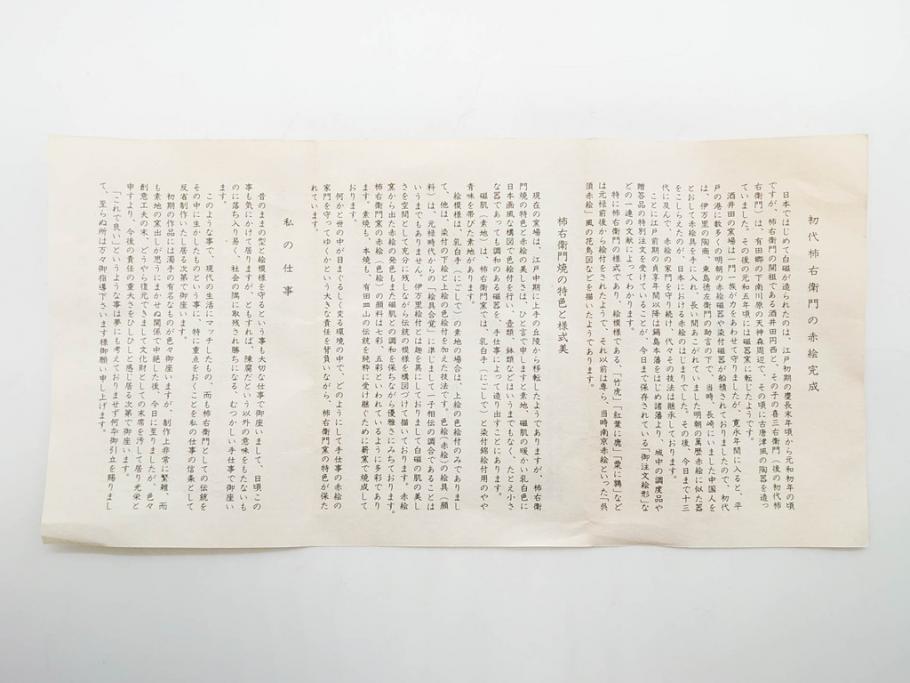 初代柿右衛門の赤絵完成
日本ではじめて白磁が造られたのは、江戸初期の慶長末年頃から元和初年の頃
ですが、柿右衛門の開祖である酒井田円西と、その子の喜三右衛門（後の初代柿
右衛門）は、有田郷の下南川原の天神森周辺で、その頃に古唐津風の陶器を造っ
ていました。その後の元和五年頃には磁器窯に転じたようです。
酒井田の窯場は一門一族が力をあわせて守りましたが、寛永年間に入ると、平
戸の港に数多くの明朝の赤絵磁器や染付磁器が船積されておりましたので、初代
としても赤絵具を手に入れ、長い間あこがれていました明朝の萬歴赤絵に似た器
は、伊万里の陶商、東島徳左衛門の助言の下で、当時、長崎にいました中国人を
をこしらえたのが、日本における赤絵のはじまりでした。その後、今日まで十三
代に及んで、赤絵の家門を守り続け、代々その技法は継承しております。
ことに江戸前期の貞享年間以降は鍋島本藩をはじめ諸藩より、城中の調度品や
贈答品の特別注文を受けていることが、今日まで保存されている「御注文絵形」な
どの一連の文献によってわかります。
特に柿右衛門の様式であり、絵模様である、「竹虎」「松葉に鷹」「粟に鶉」など
は元禄前後から絵付をされたようで、それ以前は専ら、当時南京赤絵といった「呉
須赤絵」風の花鳥図などを描いたようであります。
柿右衛門焼の特色と様式美
現在の窯場は、江戸中期に上手の丘陵から移転したようでありますが、柿右衛
門焼の特色と赤絵の美しさは、ひと言で申しますと素地、磁肌の暖かい乳白色に
日本画風な構図で色絵付を行い、壺類、鉢類などはいうまでもなく、たとえ小さ
な器であっても調和のある磁器を、手仕事によって造り出すことにあります。
磁肌（素地）は、柿右衛門窯では、乳白手（にごして）と染付錦絵付用のやや
青味を帯びた素地があります。
絵模様は、乳白手（にごして）の素地の場合は、上絵の色絵付のみでありまし
て、他は、染付の下絵と上絵の色絵付を加えた技法です。色絵（赤絵）の絵具（顔
料）は、元禄時代からの「絵具合覚」に準じまして一子相伝の調合であることは
いうまでもありません。伊万里絵付とは趣を異にしておりまして白磁の肌の美し
さを空間として充分に残しながら伝統の模様を構図づけ描いております。赤絵
窯から出た赤絵の発色もまた磁肌との調和を保ちながら優雅さにみちております。
柿右衛門窯の赤絵（色絵）の顔料は七彩、五彩といわれているように多彩であり
ます。素焼も、本焼も、有田皿山の伝統を純粋に受け継ぐために薪窯で焼成して
おります。
何かと世の中が目まぐるしく変る環境の中で、どのようにして手仕事の赤絵の
家門を守ってゆくかという大きな責任を背負いながら、柿右衛門窯の特色が保た
れています。
私の仕事
昔のままの型と絵模様を守るという事も大切な仕事で御座いまして、日頃この
事も気にかけて居りますが、ともすれば、陳腐だという以外の意味をもたないも
のに落ち入り易く、社会の隅に取残され勝ちになる、むつかしい手仕事で御座い
ます。
このような事で、現代の生活にマッチしたもの、而も柿右衛門としての伝統を
その中に生かしたものという事に、特に重点をおくことを私の仕事の信条として
反省制作いたし居る次第で御座います。
初期の作品には濁手の有名なものが色々御座いますが、制作上非常に繁雑、而
も素地の窯出しが思うにまかせぬ関係で中絶した後、今日に至りましたが、色々
創意工夫の末、どうやら復元できまして文化財としての末席を汚して居り光栄と
申すより、今後の責任の重大さをひしひしと感じ居る次第で御座います。
「これで良い」というような事は夢にも考えておりませず何卒御引立を賜りまし
て、至らぬ所は万々御指導下さいます様御願い申し上げます。